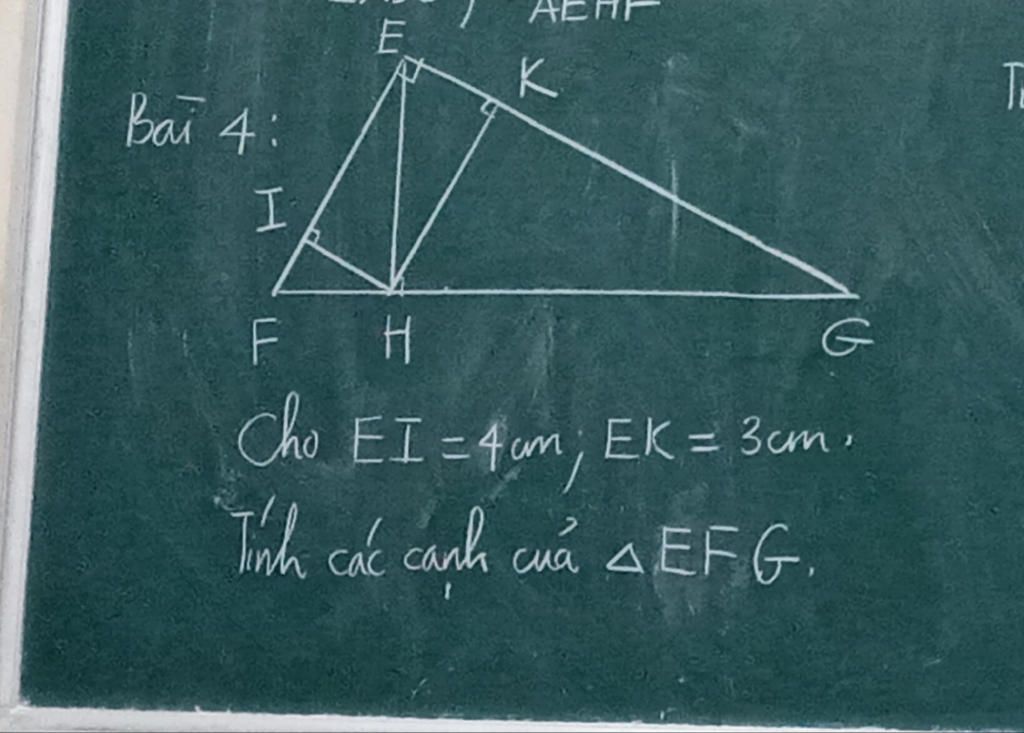 AEHF
E
K
Bài 4:
I
F H G
Cho EI = 4cm; EK = 3cm.
Tính các cạnh của △EFG.